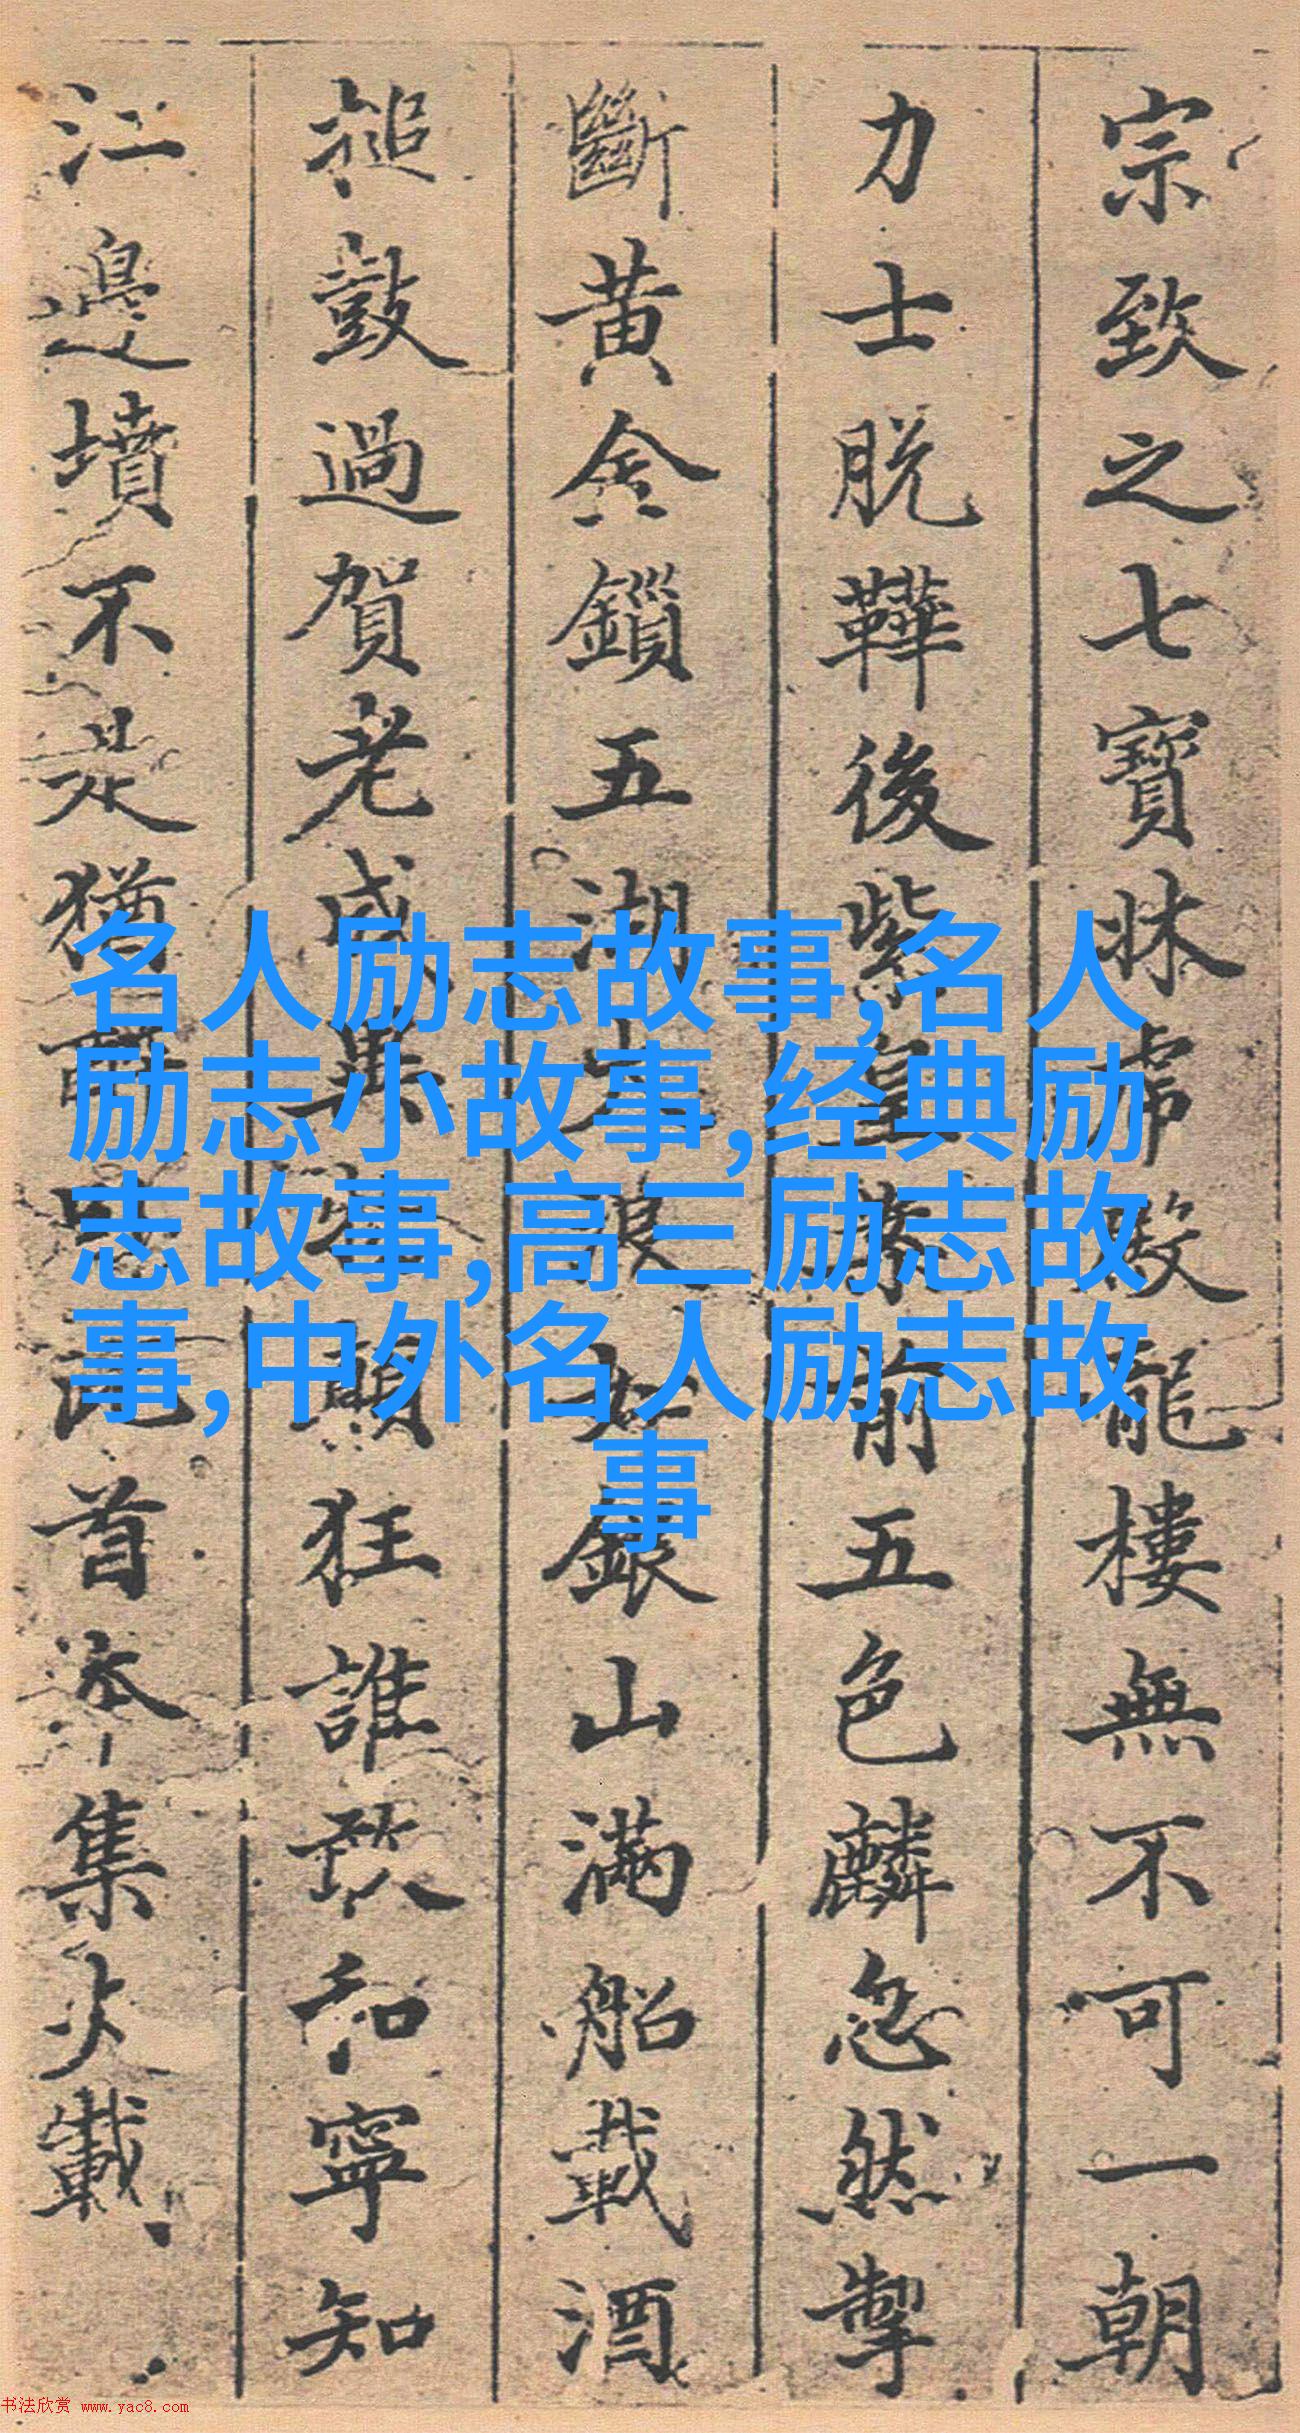 宗致之七寶牀虎殿龍樓無不可一朝
力士脱鞾後紫前五色麟忽然掣
斷黄金鎖五湖大浪如銀山滿船載酒
撾鼓過賀老成異物顛狂誰敢和寧知
江邊墳不是猶首本集大載
名人励志故事,名人
励志小故事,经典励
志故事,高三励志故
事,中外名人励志故
事
书法欣赏 www.yac8.com